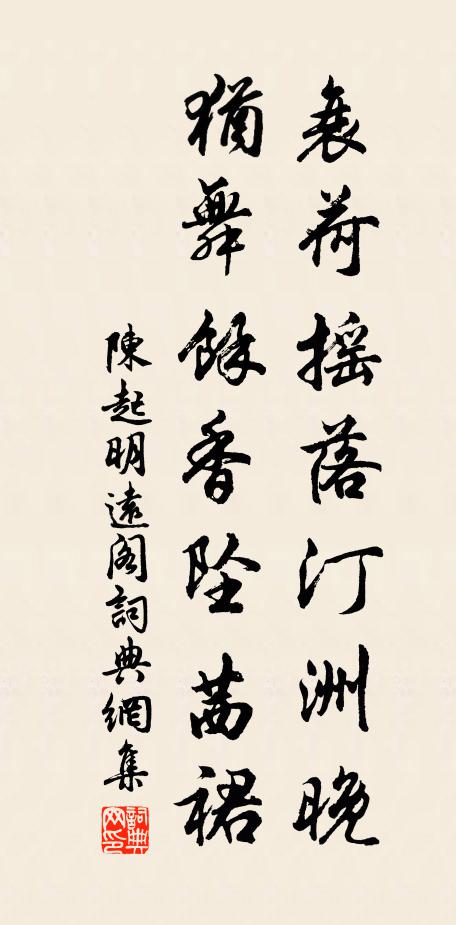 衰荷摇落汀洲晚
猶舞餘香墜茜裙
陳起明遠閣詞典網集
詞典网印